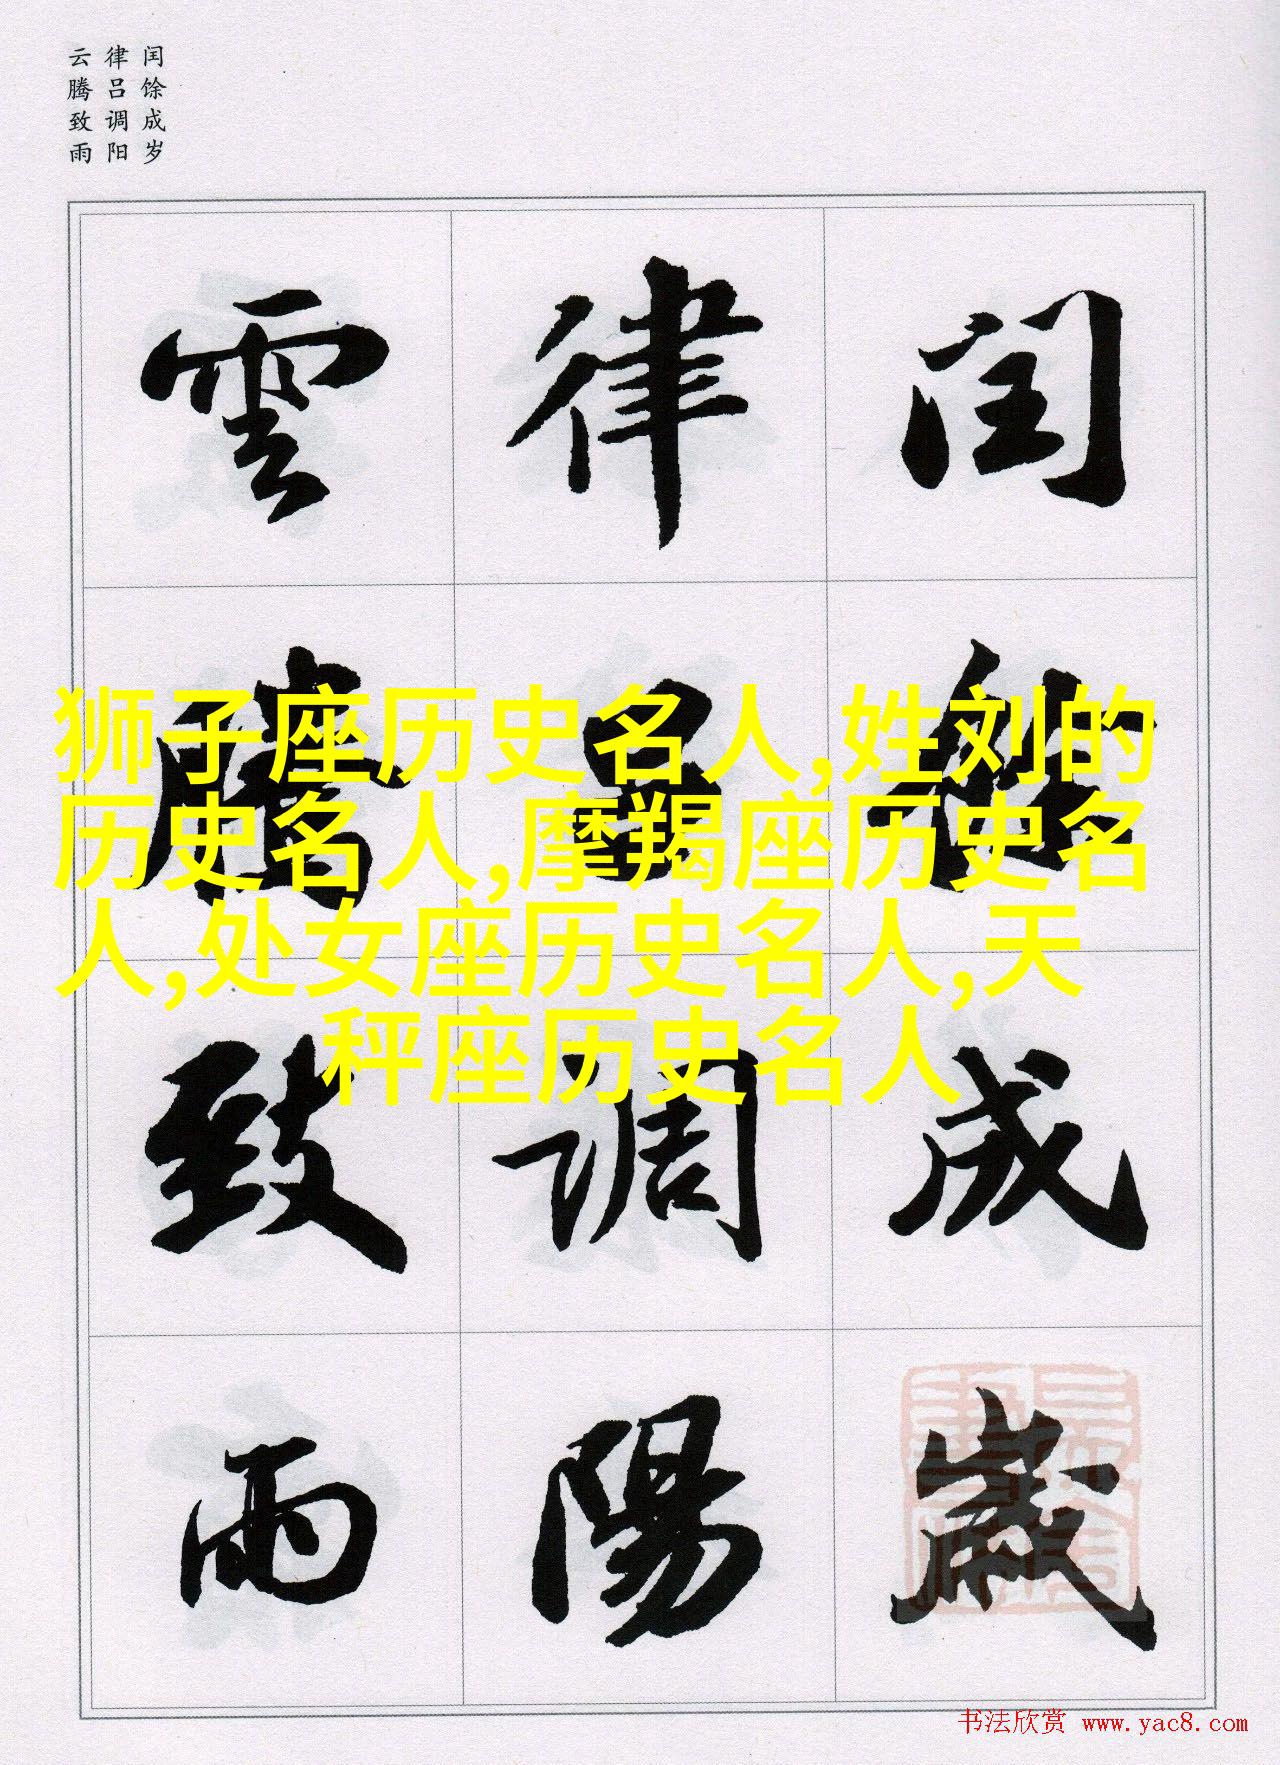 闰馀成岁
律吕调阳
云腾致雨
閏餘成歲
律吕調陽
雲騰致雨
狮子座历史名人,姓刘的
历史名人,摩羯座历史名
人,处女座历史名人,天
秤座历史名人
书法欣赏 www.yac8.com